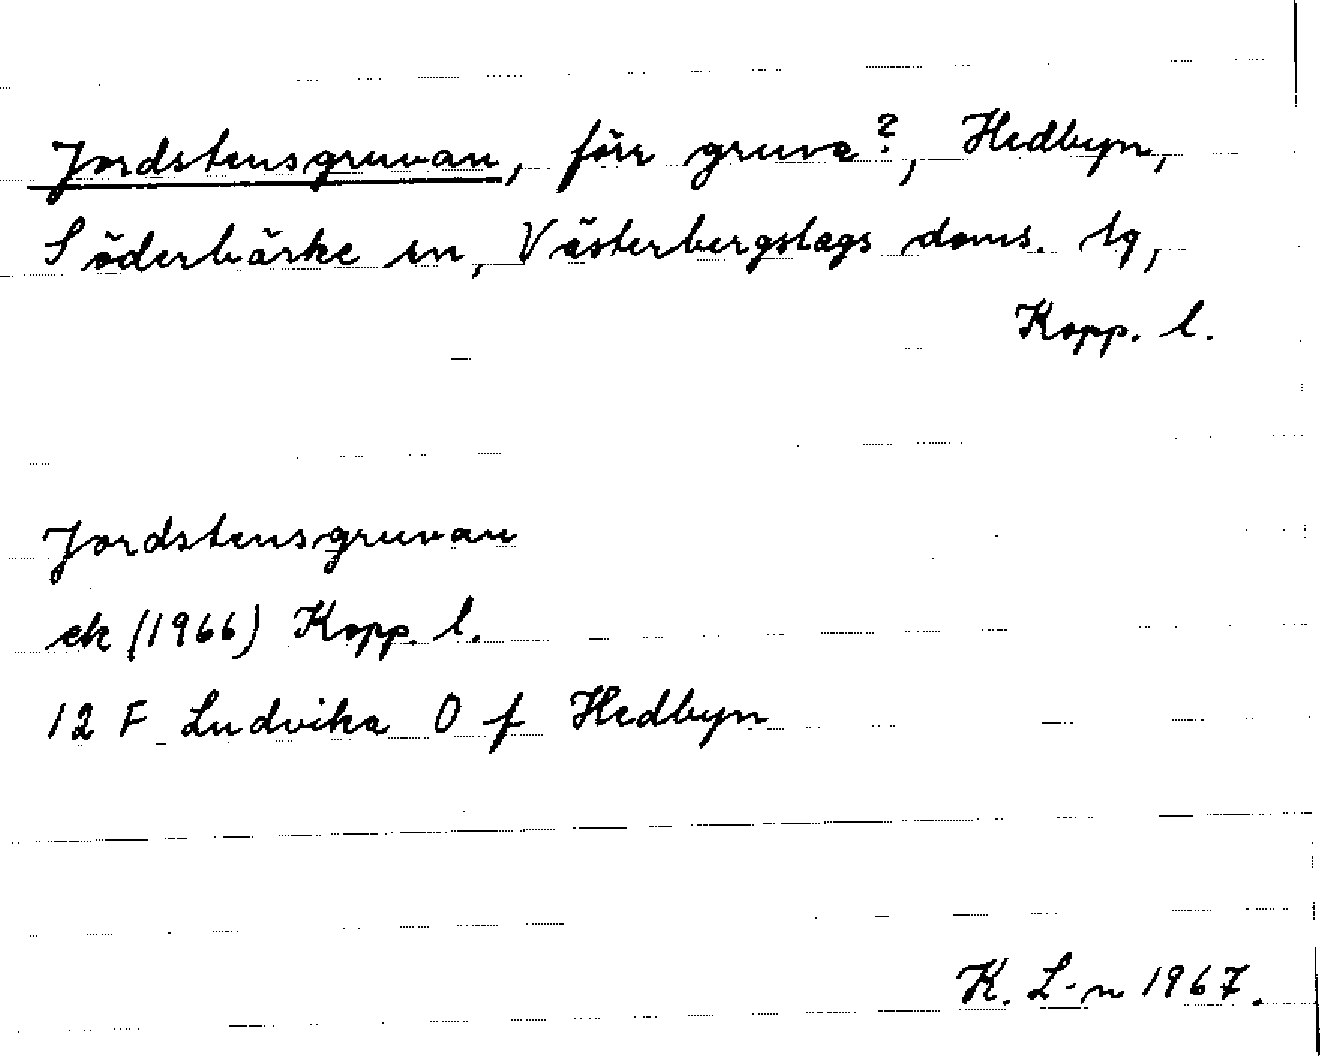 Jordstensgruvan, förr gruva?, Hedbyn,
Söderbärke sn, Västerbergslags doms. tg,
Kopp. l.
Jordstensgruvan
ek (1966) Kopp. l.
12 F Ludvika 0 f Hedbyn
K. L-n 1967.